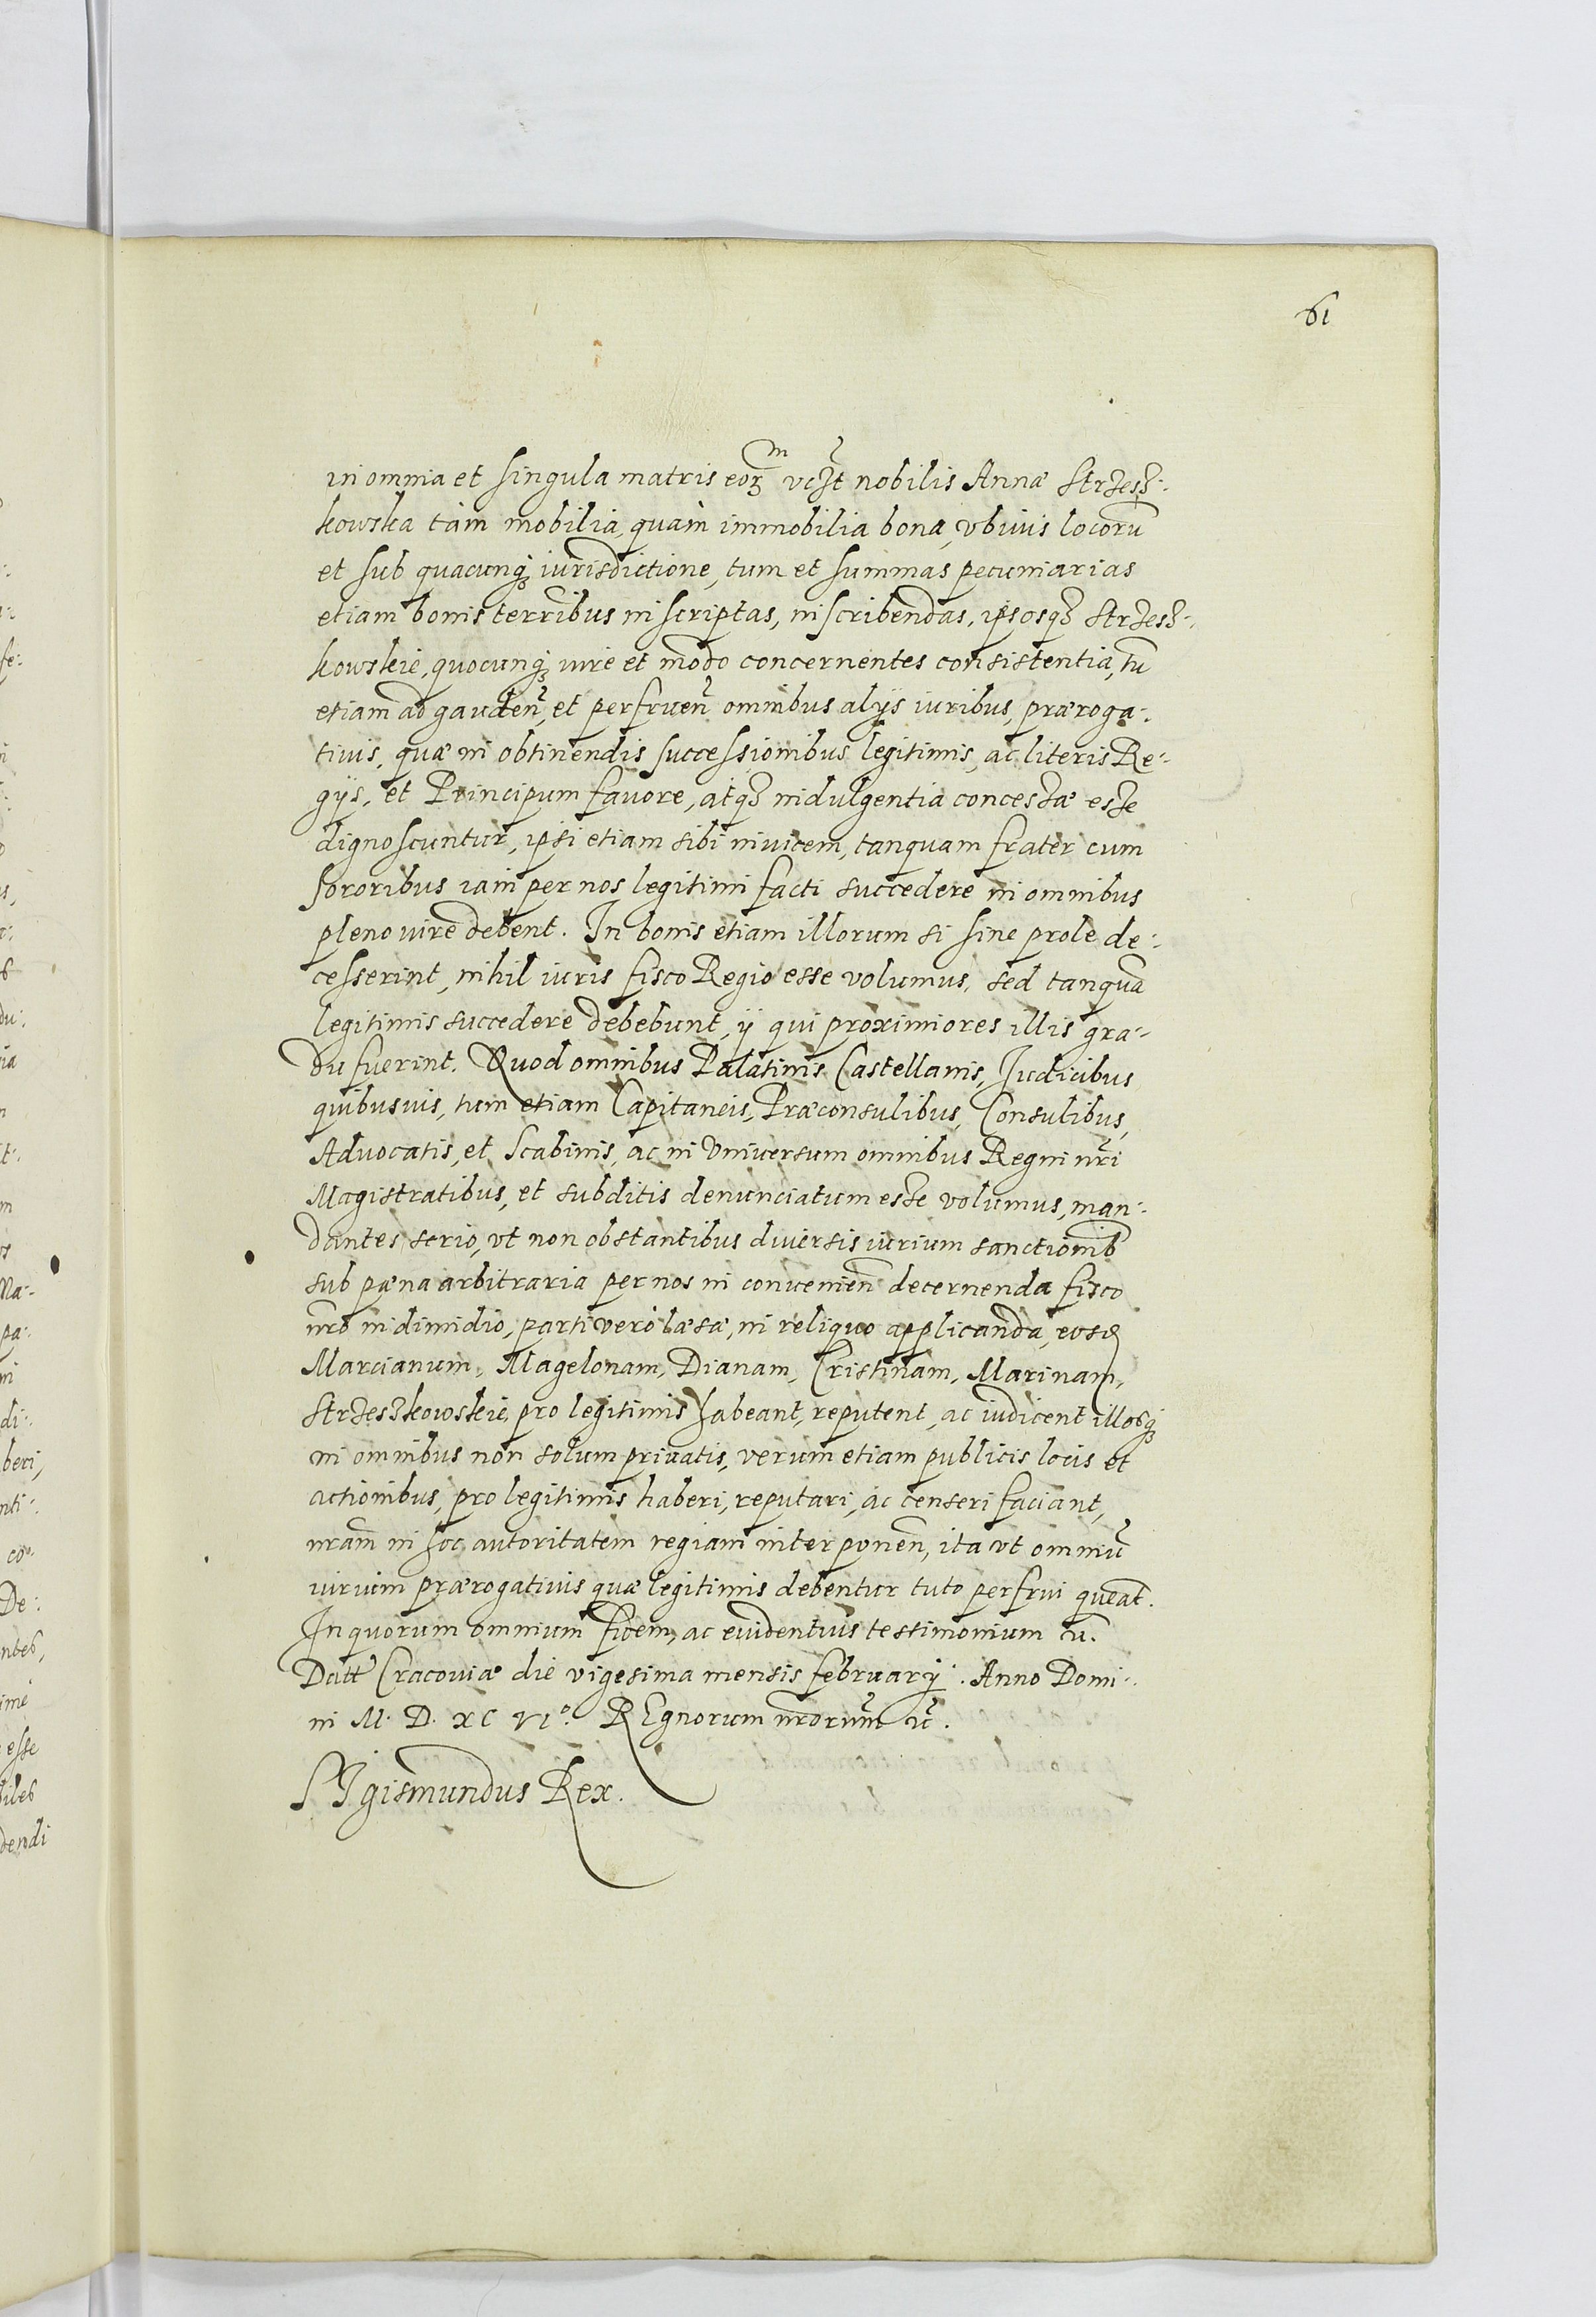 61
in omnia et singula matris eorꝫ m vczt nobilis Annæ Strzesz-
kowska tàm mobilia, quàm immobilia bona, vbiuis locorū
et sub quacunqꝫ iurisdictione, tum et summas pecuniarias
etiam bonis terribus inscriptas, inscribendas, ipsosqꝫ Strzesz-
kowskie, quocunqꝫ iure et modo concernentes consistentia, tū
etiam ad gauden̄, et perfruen̄ omnibus alijs iuribus, præroga-
tiuis, quæ in obtinendis successionibus legitimis, ac literis Re-
gijs, et Principum fauore, atqꝫ indulgentia concessæ esse
dignoscuntur, ipsi etiam sibi inuicem, tanquam frater cum
sororibus iam per nos legitimi facti succedere in omnibus
pleno iure debent. In bonis etiam illorum si sine prole de-
cesserint, nihil iuris fisco Regio esse volumus, sed tanquā
legitimis succedere debebunt, ij qui proximiores illis gra-
du fuerint. Quod omnibus Palatinis Castellanis, Iudicibus
quibusuis, tum etiam Capitaneis, Præconsulibus, Consulibus,
Aduocatis, et Scabinis, ac in vniuersum omnibus Regni nr̄i
Magistratibus, et subditis denunciatum esse volumus, man-
dantes serio, vt non obstantibus diuersis iurium sanctionib
sub pæna arbitraria per nos in conuenien̄ decernenda fisco
nr̄o in dimidio, parti verò læsæ, in reliquo applicanda, eosd
Marcianum, Magelonam, Dianam, Cristinam, Marinam,
Strzeszkowskie, pro legitimis habeant, reputent, ac iudicent illosqꝫ
in omnibus non solum priuatis, verum etiam publicis locis et
actionibus, pro legitimis haberi, reputari, ac censeri faciant,
nr̄am in hoc autoritatem regiam interponen̄, ita vt omniū
iurium prærogatiuis quæ legitimis debentur tuto perfrui queāt.
In quorum omnium fidem, ac euidentius testimonium &c.
Datt Cracouiæ die vigesima mensis februarij. Anno Domi-
ni M. D. XC VIº. REgnorum nr̄orum &c.
SIgismundus Rex.